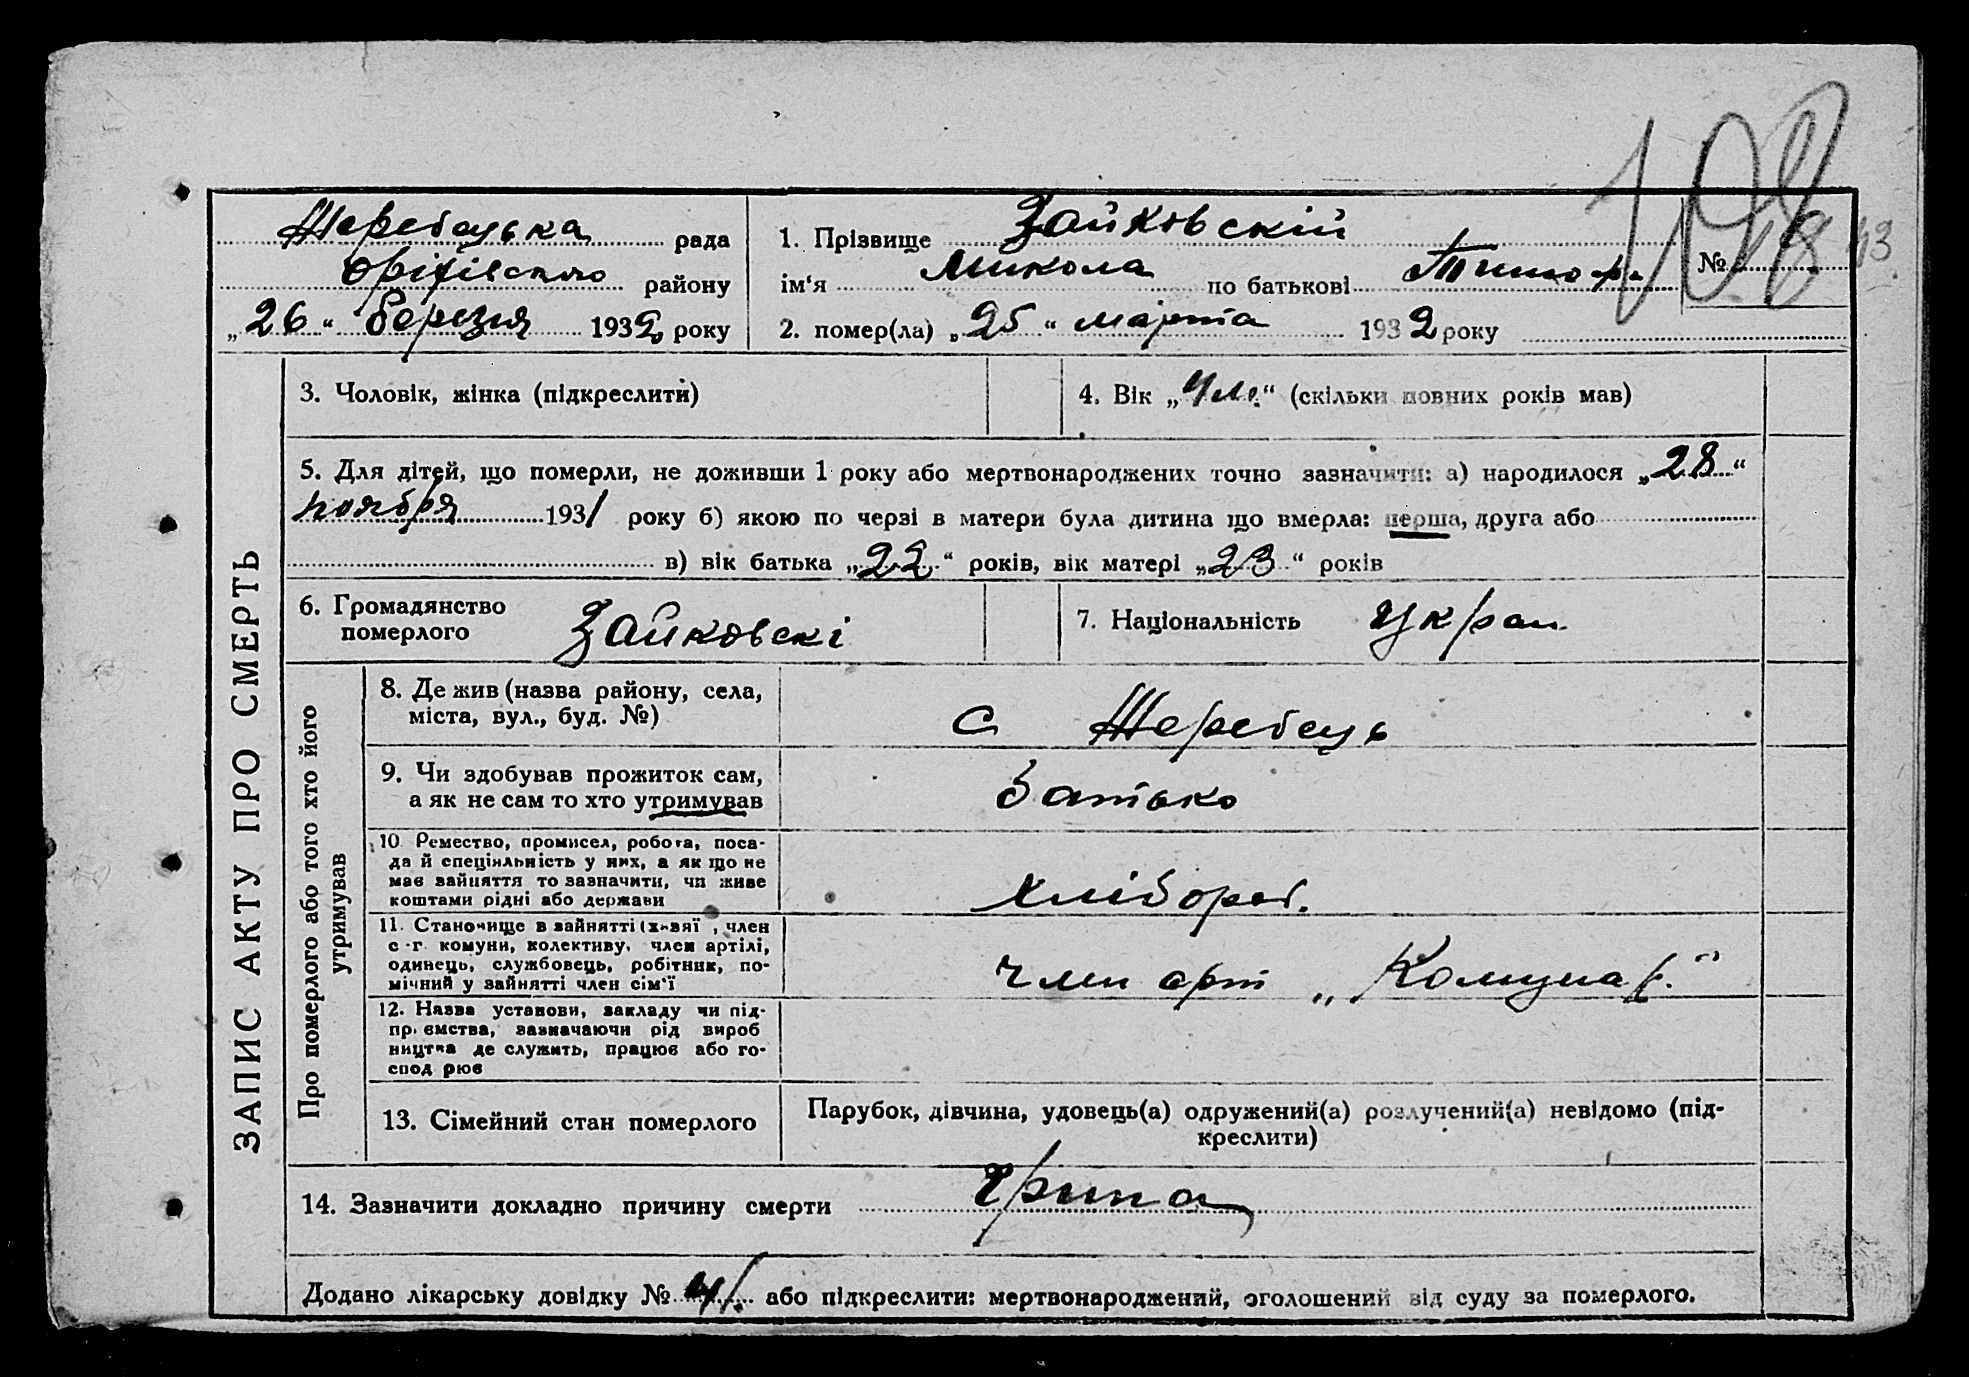 108
Жеребецька рада
Оріхівского району
„26“ березня 1932 року
1. Прізвище Зайковскій
ім‘я Микола по батькові
2. помер(ла) „25“ марта 1932 року
№ 18 43
ЗАПИС АКТУ ПРО СМЕРТЬ
3. Чоловік, жінка (підкреслити)
4. Вік „4 м.“ (скільки повних років мав)
5. Для дітей, що померли, не доживши 1 року або мертвонароджених точно зазначити: а) народилося „28“
ноября 1931 року б) якою по черзі в матери була дитина що вмерла: перша, друга або
в) вік батька „22“ років, вік матері „23“ років
6. Громадянство
померлого
Зайковскі
7. Національність Украи.
Про померлого або того хто його
утримував
8. Де жив (назва району, села,
міста, вул., буд. №)
с Жеребець
9. Чи здобував прожиток сам,
а як не сам то хто утримував
батько
10. Ремество, промисел, робота, поса-
да й спеціяльність у них, а як що не
має зайняття то зазначити, чи живе
коштами рідні або держави
хлібороб.
11. Становище в зайнятті (хазяї , член
с-г комуни, колективу, член артілі,
одинець, службовець, робітник, по-
мічний у зайнятті член сім‘ї
член арт „Комунар.“
12. Назва установи, закладу чи під-
пр.ємства, зазначаючи рід вироб
ництва де служить, працює або го-
спод рює
13. Сімейний стан померлого
Парубок, дівчина, удовець(а) одружений(а) розлучений(а) невідомо (під-
креслити)
14. Зазначити докладно причину смерти
Додано лікарську довідку № або підкреслити: мертвонароджений, оголошений від суду за померлого.